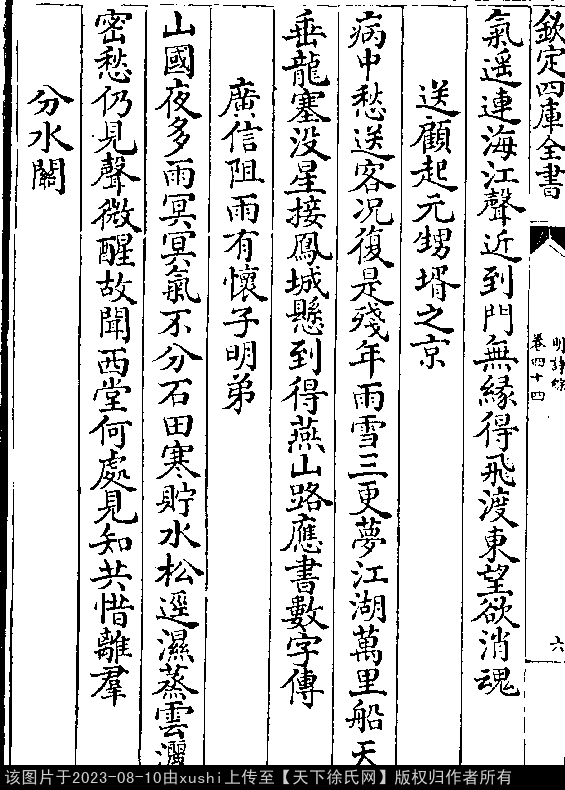 欽定四庫全書
明詩綜
卷四十四
六
氣遥連海江聲近到門無緣得飛渡東望欲消魂
送顧起元甥壻之京
病中愁送客况復是殘年雨雪三更夢江湖萬里船天
垂龍塞没星接鳳城懸到得燕山路應書數字傳
廣信阻雨有懷子明弟
山國夜多雨冥冥氣不分石田寒貯水松逕濕蒸雲灑
密愁仍見聲微醒故聞西堂何處見知共惜離羣
分水關
该图片于2023-08-10由xushi上传至【天下徐氏网】版权归作者所有